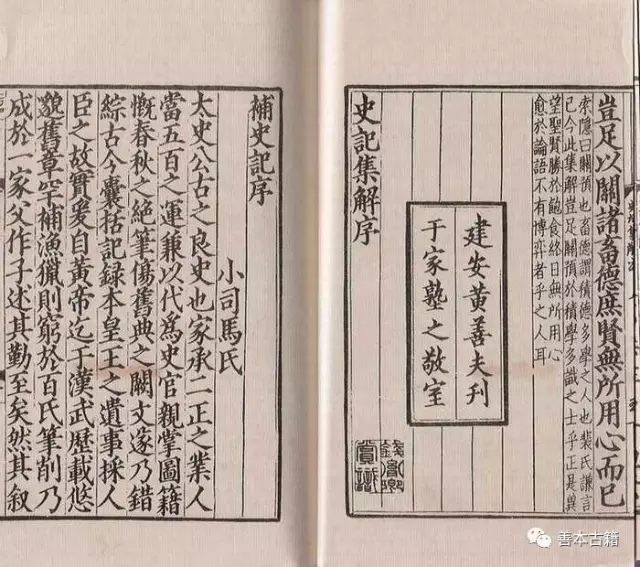 豈足以關諸畜德庶賢無所用心而已
索隱曰關預也畜德謂積德多學之人也裴氏謙言
已今此集解豈足關預於積學多識之士乎正是冀
望聖賢勝於飽食終日無所用心
愈於論語不有博弈者乎之人耳
史記集解序
建安黃善夫刊
于家塾之敬室
補史記序
小司馬氏
太史公古之良史也家承二正之業人
當五百之運兼以代爲史官親掌圖籍
慨春秋之絕筆傷舊典之闕文遂乃錯
綜古今囊括記録本皇王之遺事採人
臣之故實爰自黃帝迄于漢武歷載悠
邈舊章罕補漁獵則窮於百氏筆削乃
成於一家父作子述其勤至矣然其叙
善本古籍